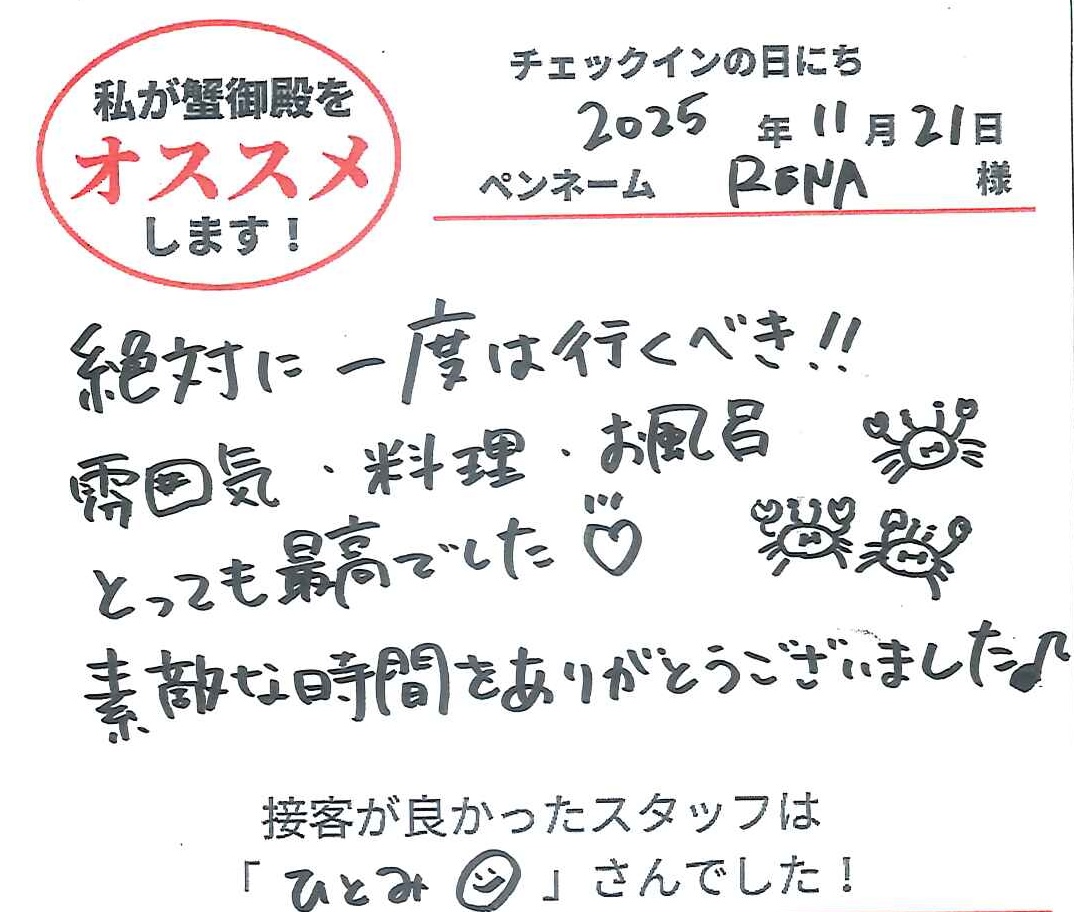 私が蟹御殿を
オススメ
します！
チェックインの日にち
2025 年 11 月 21 日
ペンネーム RENA 様
絶対に一度は行くべき!!
雰囲気・料理・お風呂
とっても最高でした♡
素敵な時間をありがとうございました♪
接客が良かったスタッフは
「ひとみ☺」さんでした！